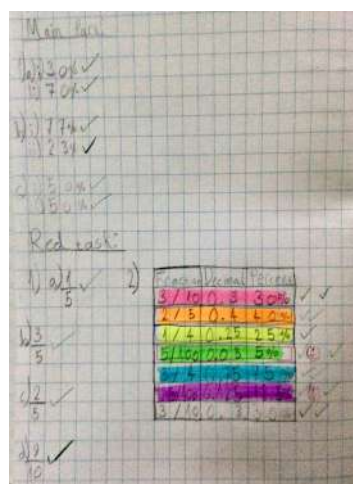 Main
a) i) 30%
ii) 70%
b) i) 77%
ii) 23%
c) i) 50%
ii) 50%
Red task:
1) a) 1/5
b) 3/5
c) 2/5
d) 9/10
2)
Fraction Decimal Percent
3/10 0.3 30%
2/5 0.4 40%
1/4 0.25 25%
5/100 0.05 5%
3/10 0.3 30%